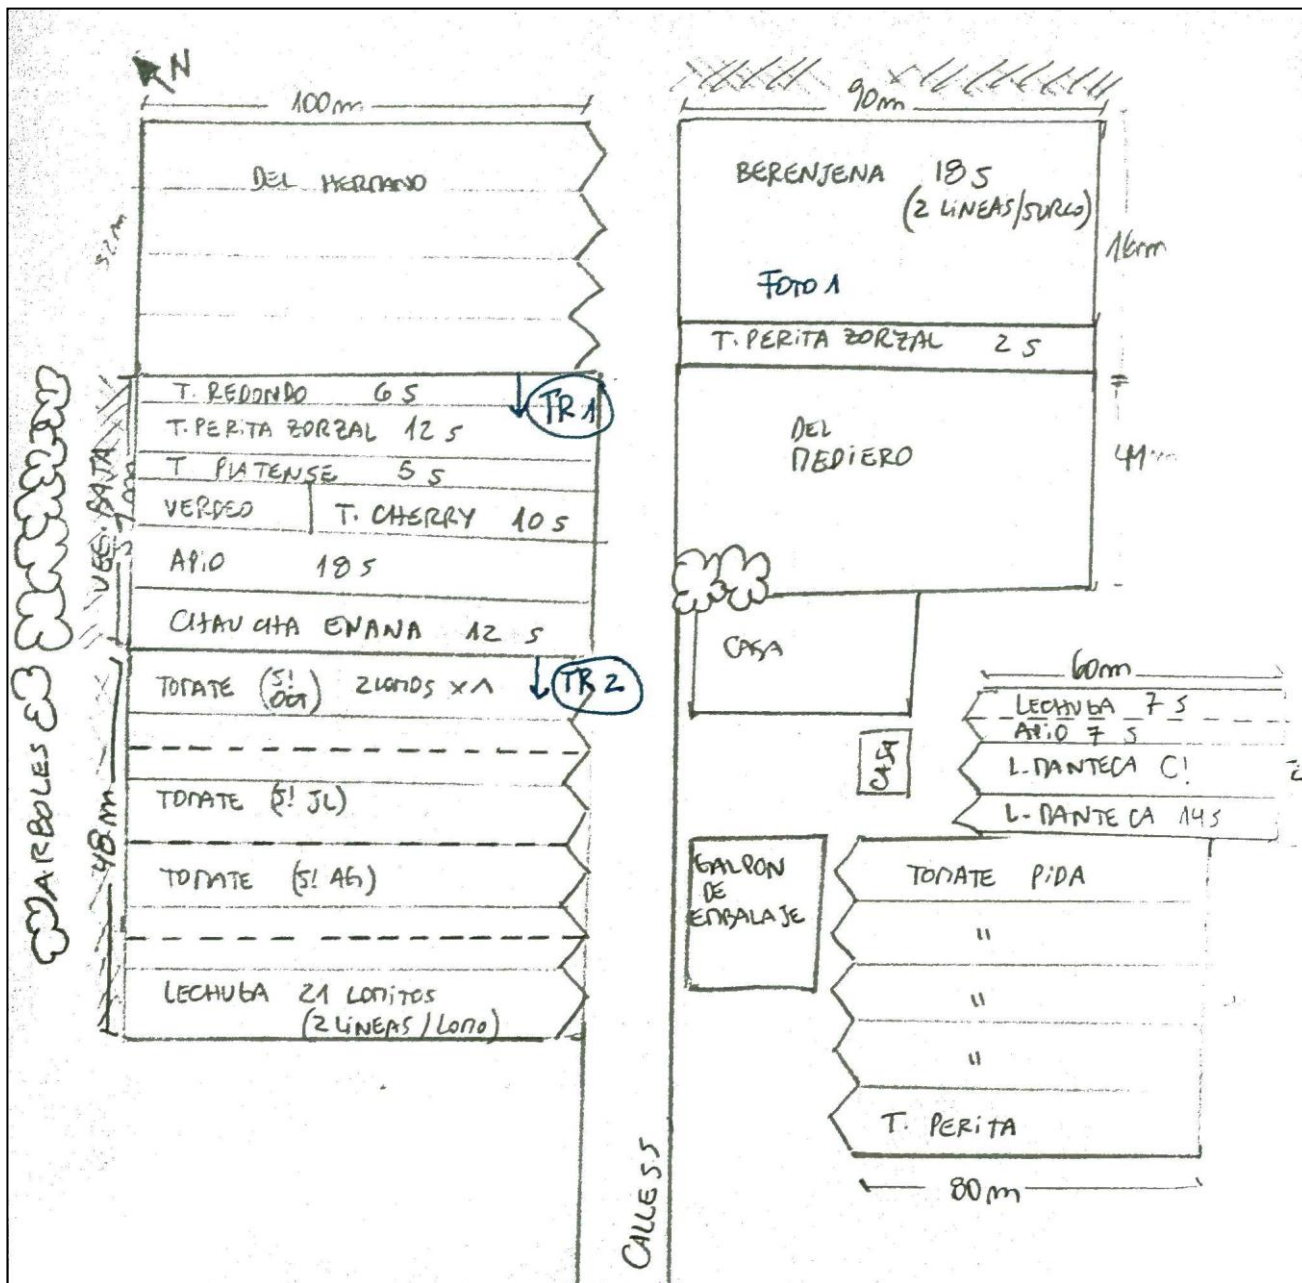 N
100m
DEL HERMANO
52m
T. REDONDO 6 S
TR 1
T. PERITA ZORZAL 12 S
T PLATENSE 5 S
VERDEO
T. CHERRY 10 S
APIO 18 S
CHAUCHA ENANA 12 S
VEG. BAJA
ARBOLES
48m
TOMATE (S! OCT) 2 LOMOS x 1
TR 2
TOMATE (S! JL)
TOMATE (S! AG)
LECHUGA 21 LOMITOS
(2 LINEAS / LOMO)
CALLE 55
90m
BERENJENA 18 S
(2 LINEAS/SURCO)
FOTO 1
T. PERITA ZORZAL 2 S
DEL
MEDIERO
CASA
CASA
60m
LECHUGA 7 S
APIO 7 S
L. MANTECA C!
L. MANTECA 14 S
GALPON
DE
EMBALAJE
TOMATE PIDA
"
"
"
T. PERITA
80m